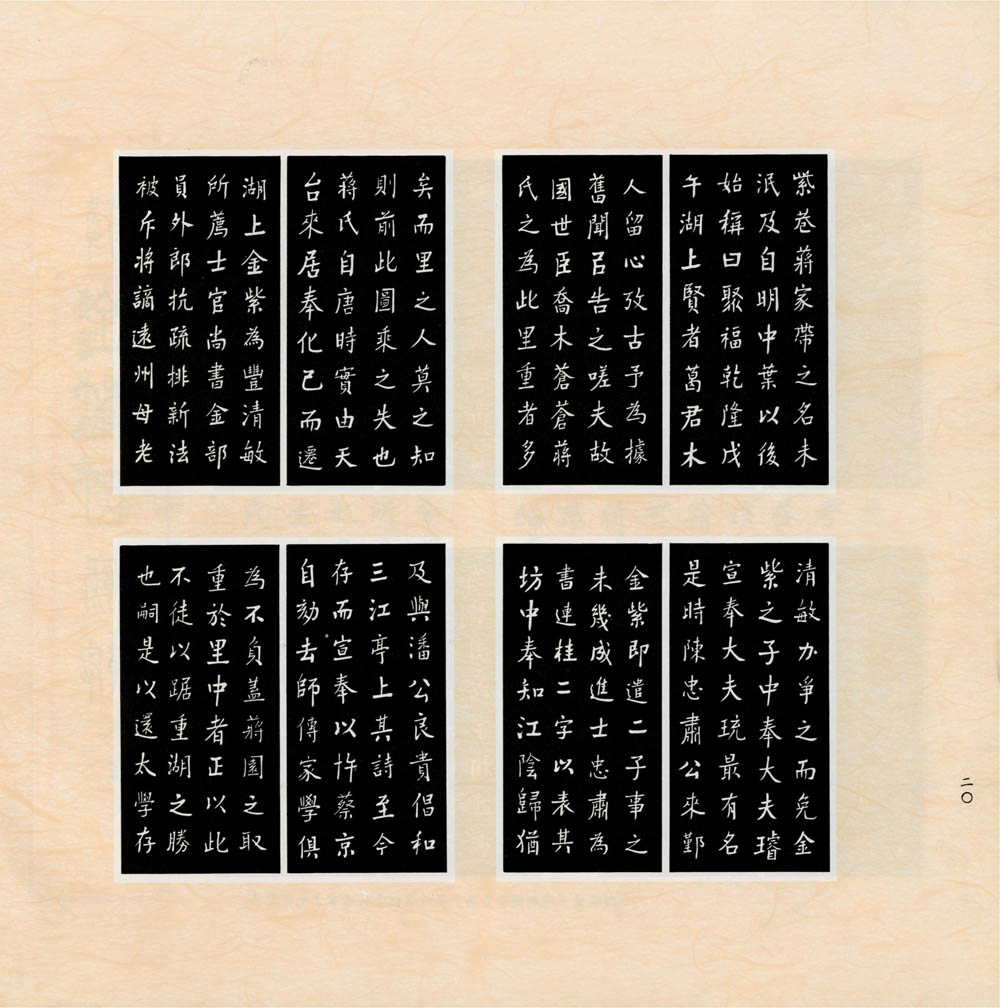 紫巷蔣家帶之名未
泯及自明中葉以後
始稱曰聚福乾隆戊
午湖上賢者葛君木
人留心攷古予為據
舊聞㠯告之嗟夫故
國世臣喬木蒼蒼蔣
氏之為此里重者多
矣而里之人莫之知
則前此圖乘之失也
蔣氏自唐時實由天
台來居奉化已而遷
湖上金紫為豐清敏
所薦士官尚書金部
員外郎抗疏排新法
被斥將謫遠州母老
清敏力爭之而免金
紫之子中奉大夫璿
宣奉大夫珫最有名
是時陳忠肅公來鄞
金紫即遣二子事之
未幾成進士忠肅為
書連桂二字以表其
坊中奉知江陰歸猶
及與潘公良貴倡和
三江亭上其詩至今
存而宣奉以忤蔡京
自劾去師傳家學俱
為不負蓋蔣園之取
重於里中者正以此
不徒以踞重湖之勝
也嗣是以還太學存
二〇